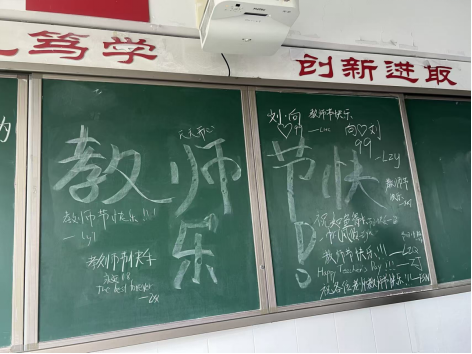 笃学
创新进取
教师节快乐!
天天开心
教师节快乐!!!
—Lyl
教师节快乐
永远18
The best forever
—Zx
刘♡向
教师节快乐
向♡刘
99
—Lzy
教师节
快乐
教师节快乐!!!
Happy Teacher's Day!!!
—ZJ
祝各位老师教师节快乐!!